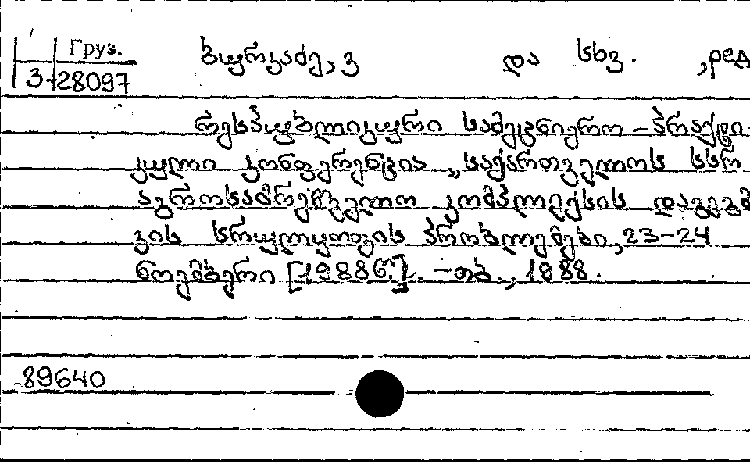 Груз.
3-28097
ბურკაძე, ვ და სხვ. , ред
რესპუბლიკური სამეცნიერო - პრაქტი-
კული კონფერენცია „საქართველოს სსრ
აგროსამრეწველო კომპლექსის დაგეგმ
ვის სრულყოფის პრობლემები, 23-24
ნოემბერი [1988წ.]. - თბ., 1988.
89640